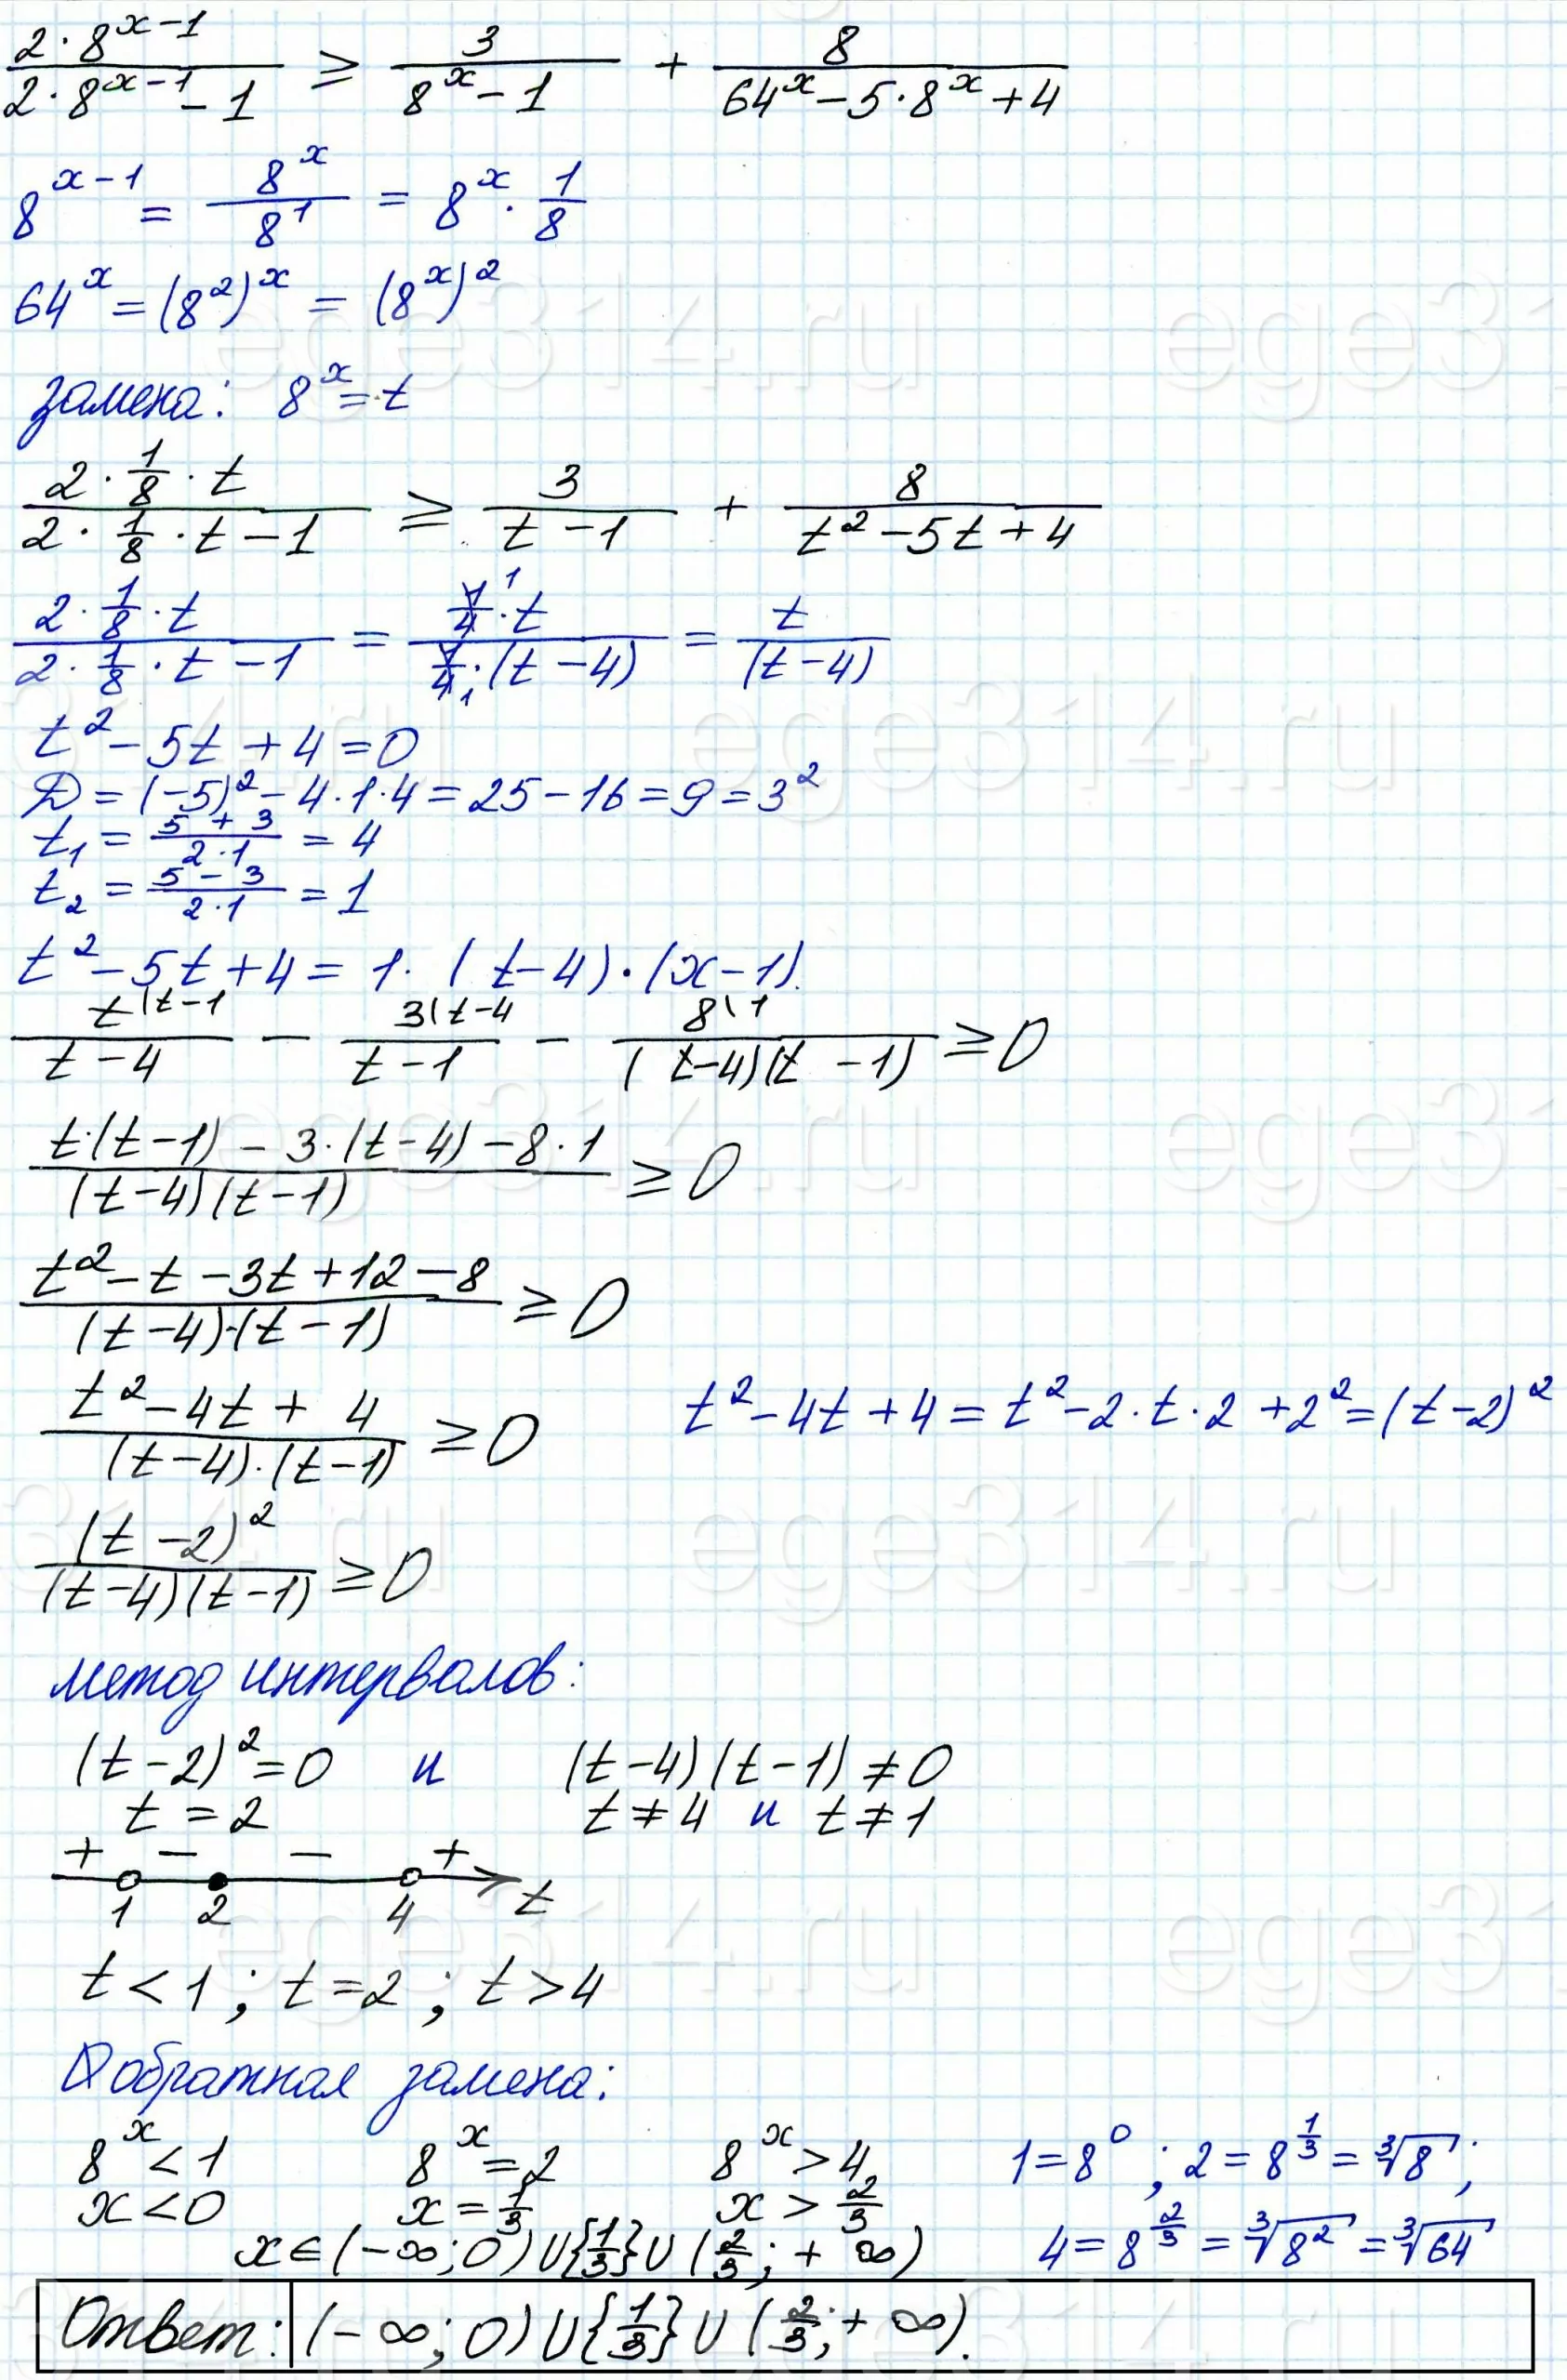 2·8^(x-1) / (2·8^(x-1) - 1) ≥ 3 / (8^x - 1) + 8 / (64^x - 5·8^x + 4)
8^(x-1) = 8^x / 8^1 = 8^x · 1/8
64^x = (8^2)^x = (8^x)^2
замена: 8^x = t
(2·1/8·t) / (2·1/8·t - 1) ≥ 3 / (t - 1) + 8 / (t^2 - 5t + 4)
(2·1/8·t) / (2·1/8·t - 1) = (1/4·t) / (1/4·(t - 4)) = t / (t - 4)
t^2 - 5t + 4 = 0
D = (-5)^2 - 4·1·4 = 25 - 16 = 9 = 3^2
t₁ = (5 + 3) / (2·1) = 4
t₂ = (5 - 3) / (2·1) = 1
t^2 - 5t + 4 = 1·(t - 4)·(x - 1).
t\t-1 / (t - 4) - 3\t-4 / (t - 1) - 8\1 / ((t - 4)(t - 1)) ≥ 0
(t·(t - 1) - 3·(t - 4) - 8·1) / ((t - 4)(t - 1)) ≥ 0
(t^2 - t - 3t + 12 - 8) / ((t - 4)·(t - 1)) ≥ 0
(t^2 - 4t + 4) / ((t - 4)·(t - 1)) ≥ 0 t^2 - 4t + 4 = t^2 - 2·t·2 + 2^2 = (t - 2)^2
(t - 2)^2 / ((t - 4)(t - 1)) ≥ 0
метод интервалов:
(t - 2)^2 = 0 и (t - 4)(t - 1) ≠ 0
t = 2 t ≠ 4 и t ≠ 1
+ - - +
1 2 4 t
t < 1 ; t = 2 ; t > 4
обратная замена:
8^x < 1 8^x = 2 8^x > 4 1 = 8^0 ; 2 = 8^(1/3) = ∛8 ;
x < 0 x = 1/3 x > 2/3 4 = 8^(2/3) = ∛(8^2) = ∛64
x ∈ (-∞; 0) ∪ {1/3} ∪ (2/3; +∞)
Ответ: (-∞; 0) ∪ {1/3} ∪ (2/3; +∞).
ege314.ru